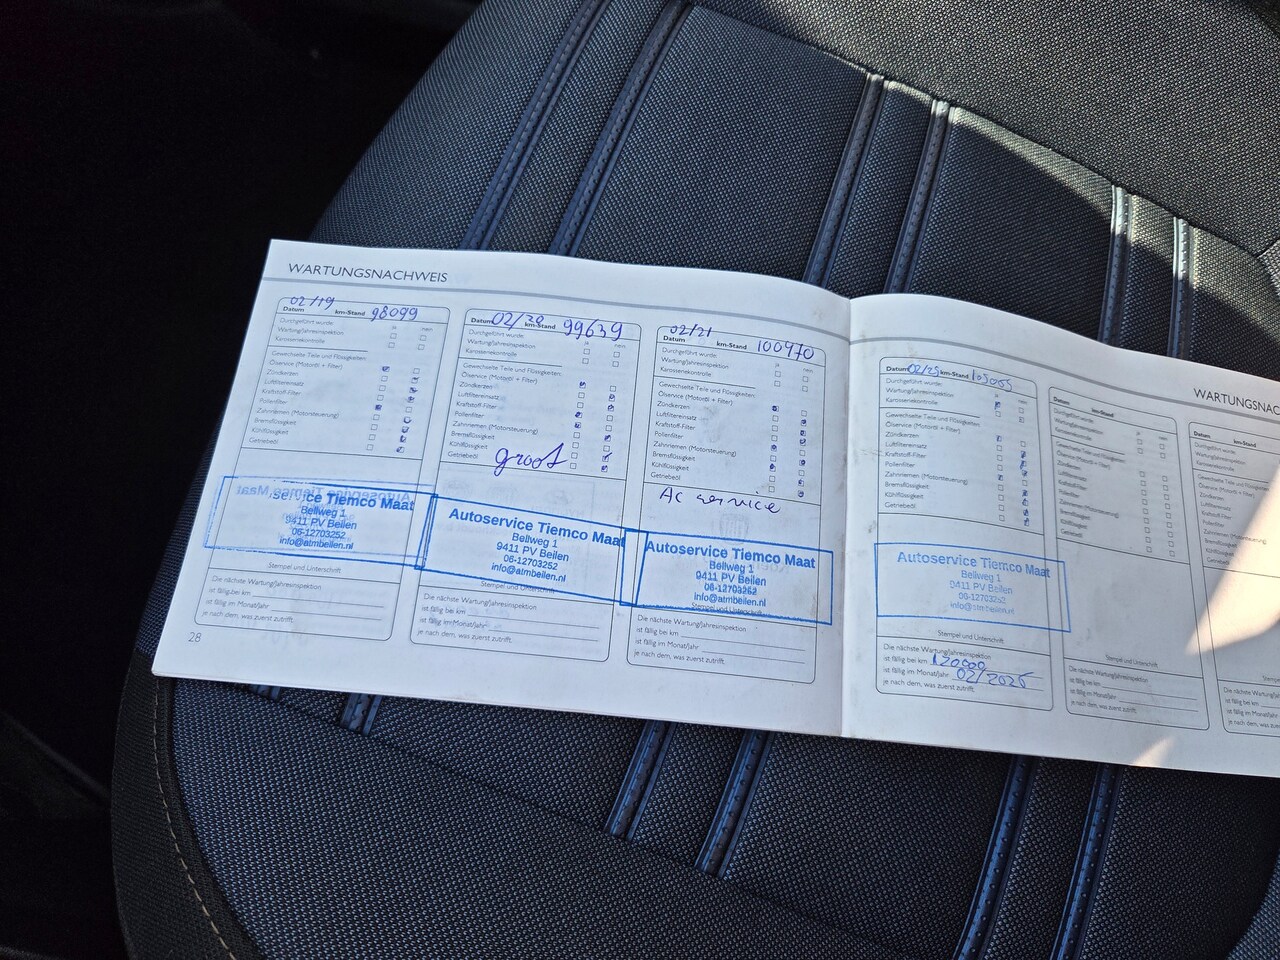 WARTUNGSNACHWEIS
02/19
Datum km-Stand 98099
Durchgeführt wurde: ja nein
Wartung/Jahresinspektion
Karosseriekontrolle
Gewechselte Teile und Flüssigkeiten:
Ölservice (Motoröl + Filter)
Zündkerzen
Luftfiltereinsatz
Kraftstoff-Filter
Pollenfilter
Zahnriemen (Motorsteuerung)
Bremsflüssigkeit
Kühlflüssigkeit
Getriebeöl
Autoservice Tiemco Maat
Bellweg 1
9411 PV Beilen
06-12703252
info@atmbeilen.nl
Stempel und Unterschrift
Die nächste Wartung/Jahresinspektion
ist fällig bei km
ist fällig im Monat/Jahr
je nach dem, was zuerst zutrifft.
28
Datum 02/20 km-Stand 99639
Durchgeführt wurde: ja nein
Wartung/Jahresinspektion
Karosseriekontrolle
Gewechselte Teile und Flüssigkeiten:
Ölservice (Motoröl + Filter)
Zündkerzen
Luftfiltereinsatz
Kraftstoff-Filter
Pollenfilter
Zahnriemen (Motorsteuerung)
Bremsflüssigkeit
Kühlflüssigkeit
Getriebeöl
groot
Autoservice Tiemco Maat
Bellweg 1
9411 PV Beilen
06-12703252
info@atmbeilen.nl
Stempel und Unterschrift
Die nächste Wartung/Jahresinspektion
ist fällig bei km
ist fällig im Monat/Jahr
je nach dem, was zuerst zutrifft.
02/21
Datum km-Stand 100970
Durchgeführt wurde: ja nein
Wartung/Jahresinspektion
Karosseriekontrolle
Gewechselte Teile und Flüssigkeiten:
Ölservice (Motoröl + Filter)
Zündkerzen
Luftfiltereinsatz
Kraftstoff-Filter
Pollenfilter
Zahnriemen (Motorsteuerung)
Bremsflüssigkeit
Kühlflüssigkeit
Getriebeöl
Ac service
Autoservice Tiemco Maat
Bellweg 1
9411 PV Beilen
06-12703252
info@atmbeilen.nl
Stempel und Unterschrift
Die nächste Wartung/Jahresinspektion
ist fällig bei km
ist fällig im Monat/Jahr
je nach dem, was zuerst zutrifft.
WARTUNGSNAC
Datum 02/25 km-Stand 105055
Durchgeführt wurde: ja nein
Wartung/Jahresinspektion
Karosseriekontrolle
Gewechselte Teile und Flüssigkeiten:
Ölservice (Motoröl + Filter)
Zündkerzen
Luftfiltereinsatz
Kraftstoff-Filter
Pollenfilter
Zahnriemen (Motorsteuerung)
Bremsflüssigkeit
Kühlflüssigkeit
Getriebeöl
Autoservice Tiemco Maat
Bellweg 1
9411 PV Beilen
06-12703252
info@atmbeilen.nl
Stempel und Unterschrift
Die nächste Wartung/Jahresinspektion
ist fällig bei km 120000
ist fällig im Monat/Jahr 02/2026
je nach dem, was zuerst zutrifft.
Datum km-Stand
Durchgeführt wurde: ja nein
Wartung/Jahresinspektion
Karosseriekontrolle
Gewechselte Teile und Flüssigkeiten:
Ölservice (Motoröl + Filter)
Zündkerzen
Luftfiltereinsatz
Kraftstoff-Filter
Pollenfilter
Zahnriemen (Motorsteuerung)
Bremsflüssigkeit
Kühlflüssigkeit
Getriebeöl
Stempel und Unterschrift
Die nächste Wartung/Jahresinspektion
ist fällig bei km
ist fällig im Monat/Jahr
je nach dem, was zuerst zutrifft.
Datum km-Stand
Durchgeführt wurde:
Wartung/Jahresinspektion
Karosseriekontrolle
Gewechselte Teile und Flüssigkeiten:
Ölservice (Motoröl + Filter)
Zündkerzen
Luftfiltereinsatz
Kraftstoff-Filter
Pollenfilter
Zahnriemen (Motorsteuerung)
Bremsflüssigkeit
Kühlflüssigkeit
Getriebeöl
Die nächste Wartung/Jahresinspektion
ist fällig bei km
ist fällig im Monat/Jahr
je nach dem, was zuerst